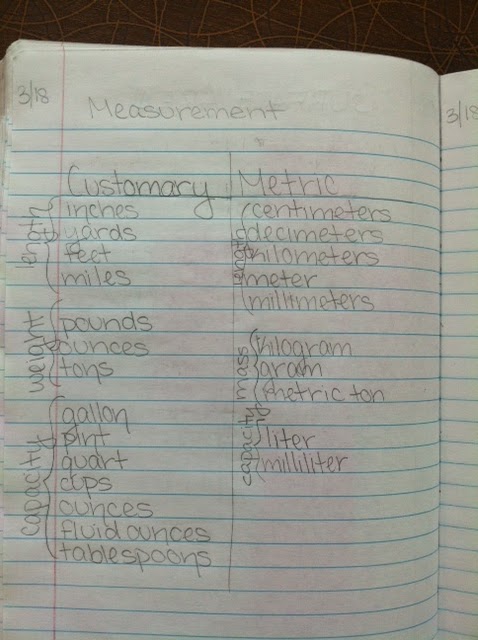 3/18
3/18
Measurement
Customary Metric
length
inches
yards
feet
miles
weight
pounds
ounces
tons
capacity
gallon
pint
quart
cups
ounces
fluid ounces
tablespoons
length
centimeters
decimeters
kilometers
meter
millimeters
mass
kilogram
gram
metric ton
capacity
liter
milliliter